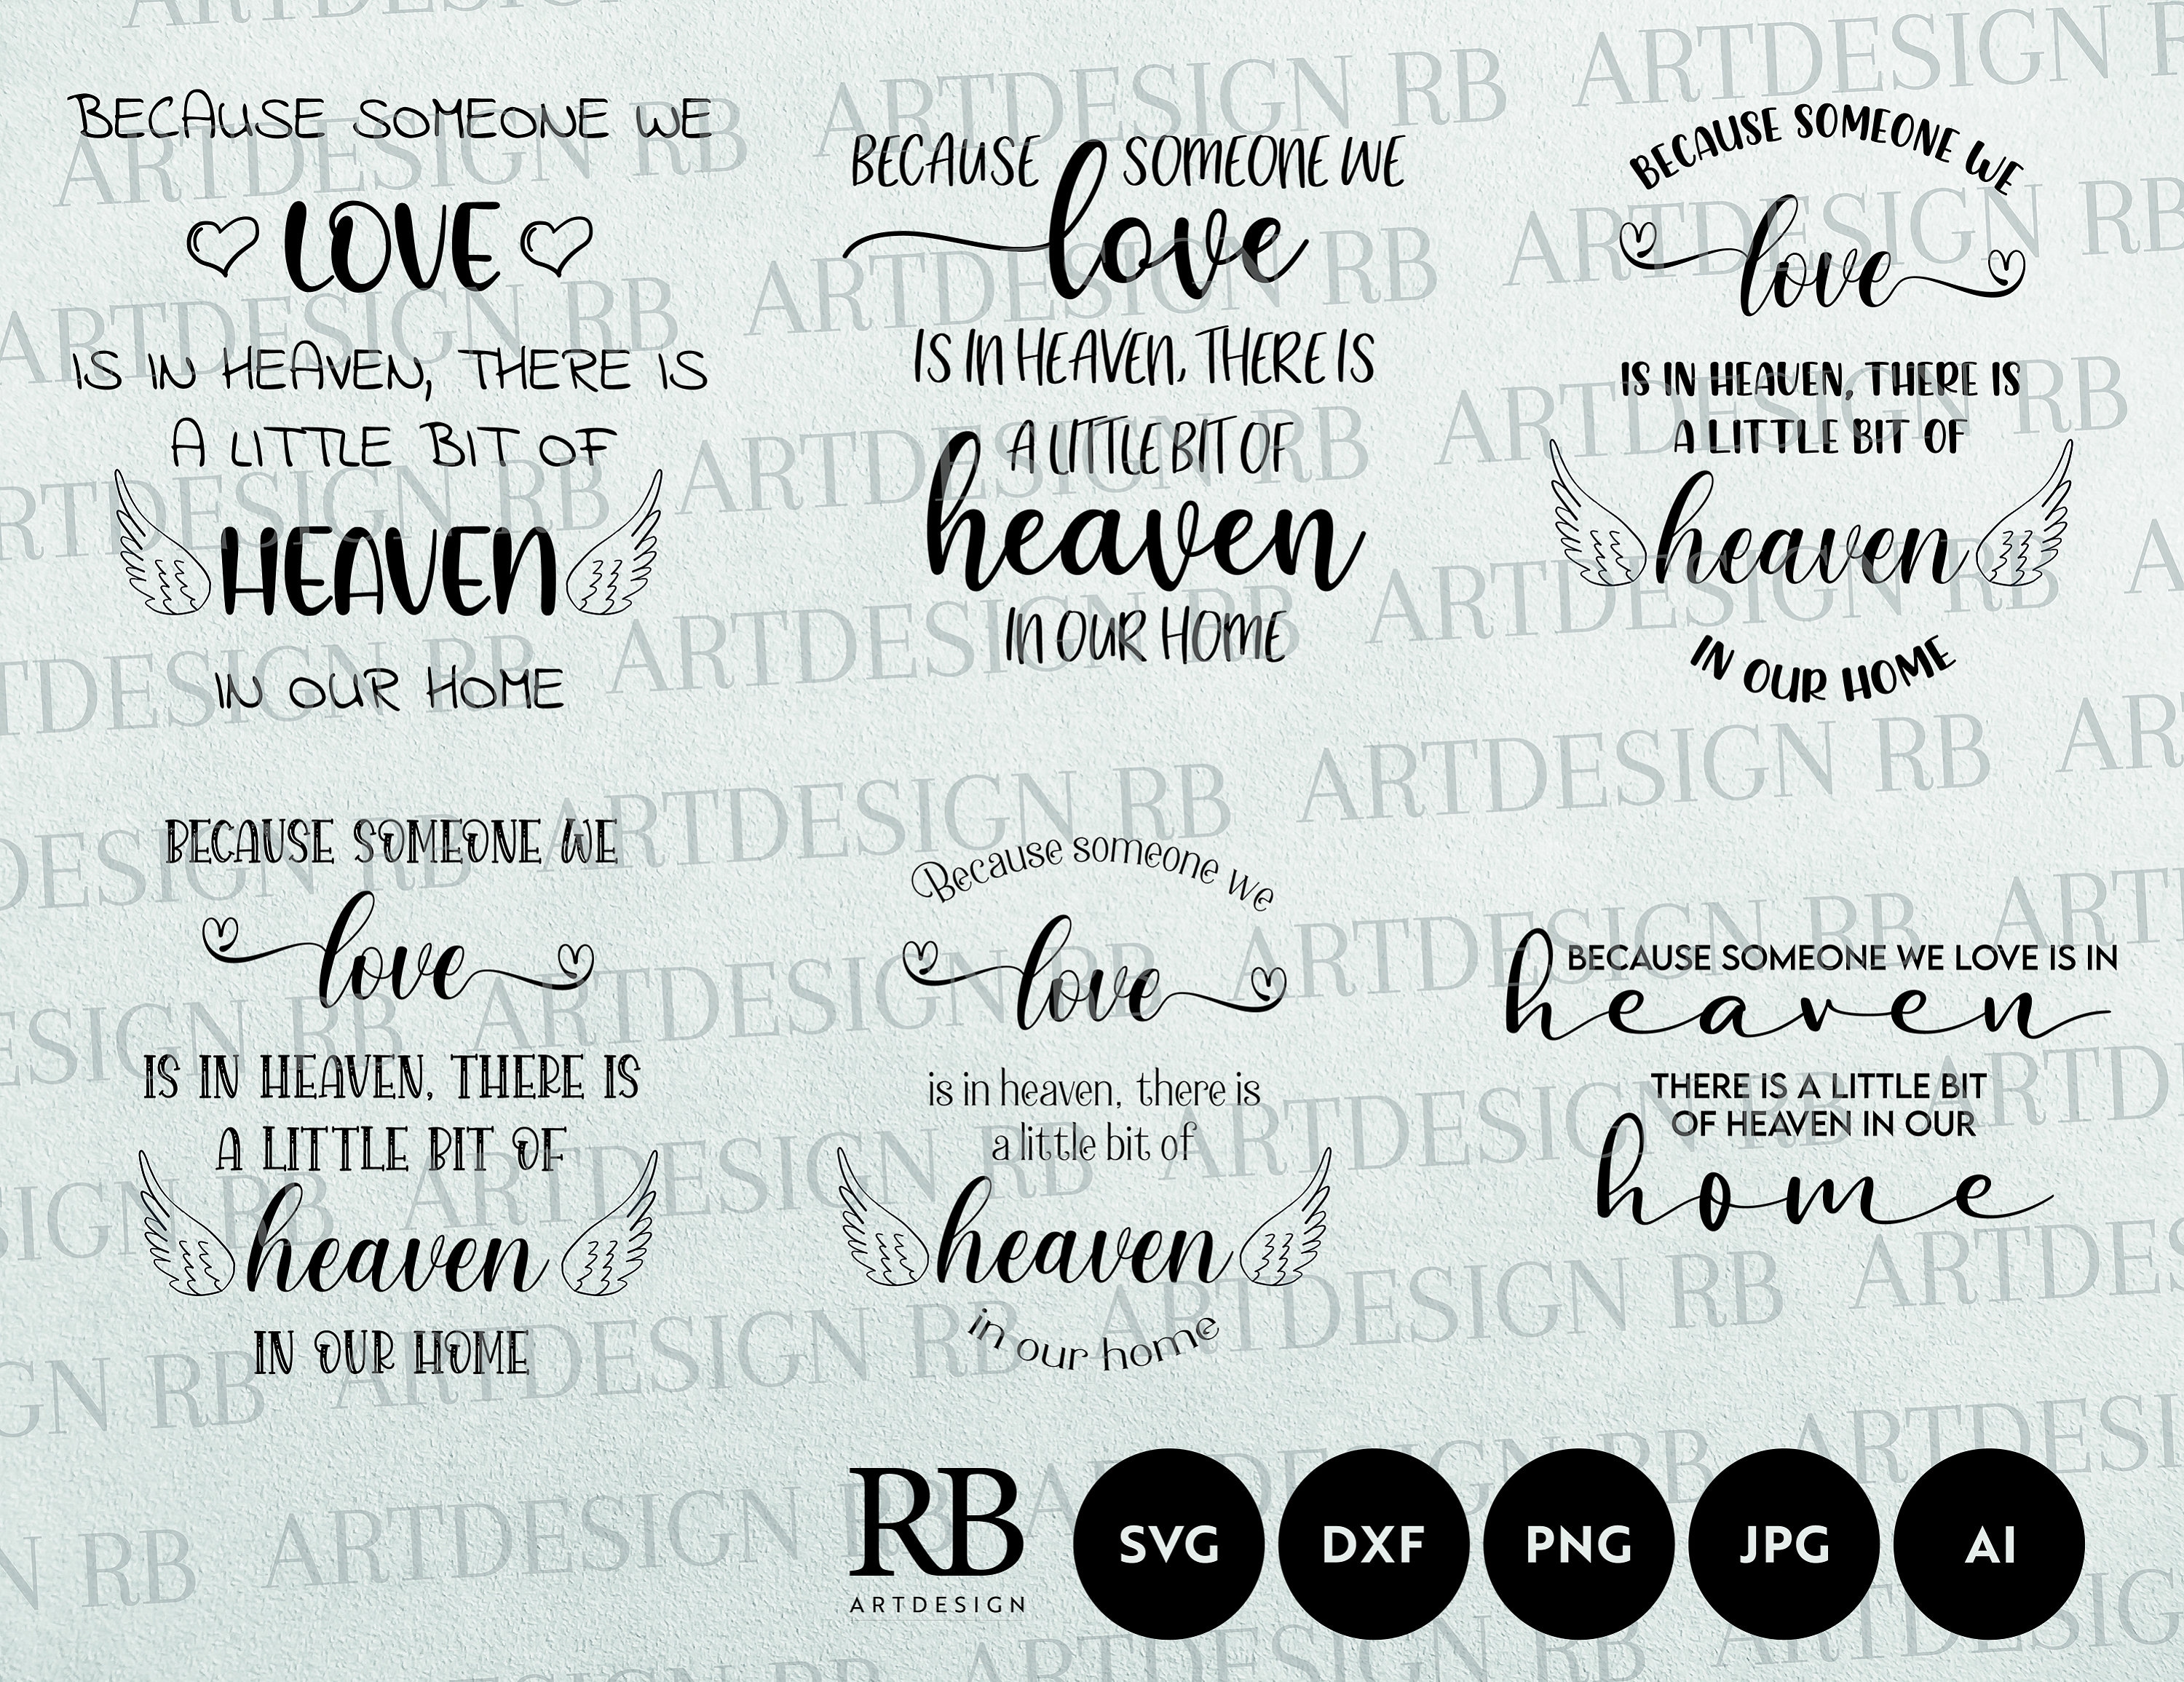 BECAUSE SOMEONE WE
LOVE
IS IN HEAVEN, THERE IS
A LITTLE BIT OF
HEAVEN
IN OUR HOME
BECAUSE SOMEONE WE
love
IS IN HEAVEN, THERE IS
A LITTLE BIT OF
heaven
IN OUR HOME
BECAUSE SOMEONE WE
love
IS IN HEAVEN, THERE IS
A LITTLE BIT OF
heaven
IN OUR HOME
BECAUSE SOMEONE WE
love
IS IN HEAVEN, THERE IS
A LITTLE BIT OF
heaven
IN OUR HOME
Because someone we
love
is in heaven, there is
a little bit of
heaven
in our home
BECAUSE SOMEONE WE LOVE IS IN
heaven
THERE IS A LITTLE BIT
OF HEAVEN IN OUR
home
RB
ARTDESIGN
SVG DXF PNG JPG AI
ARTDESIGN RB